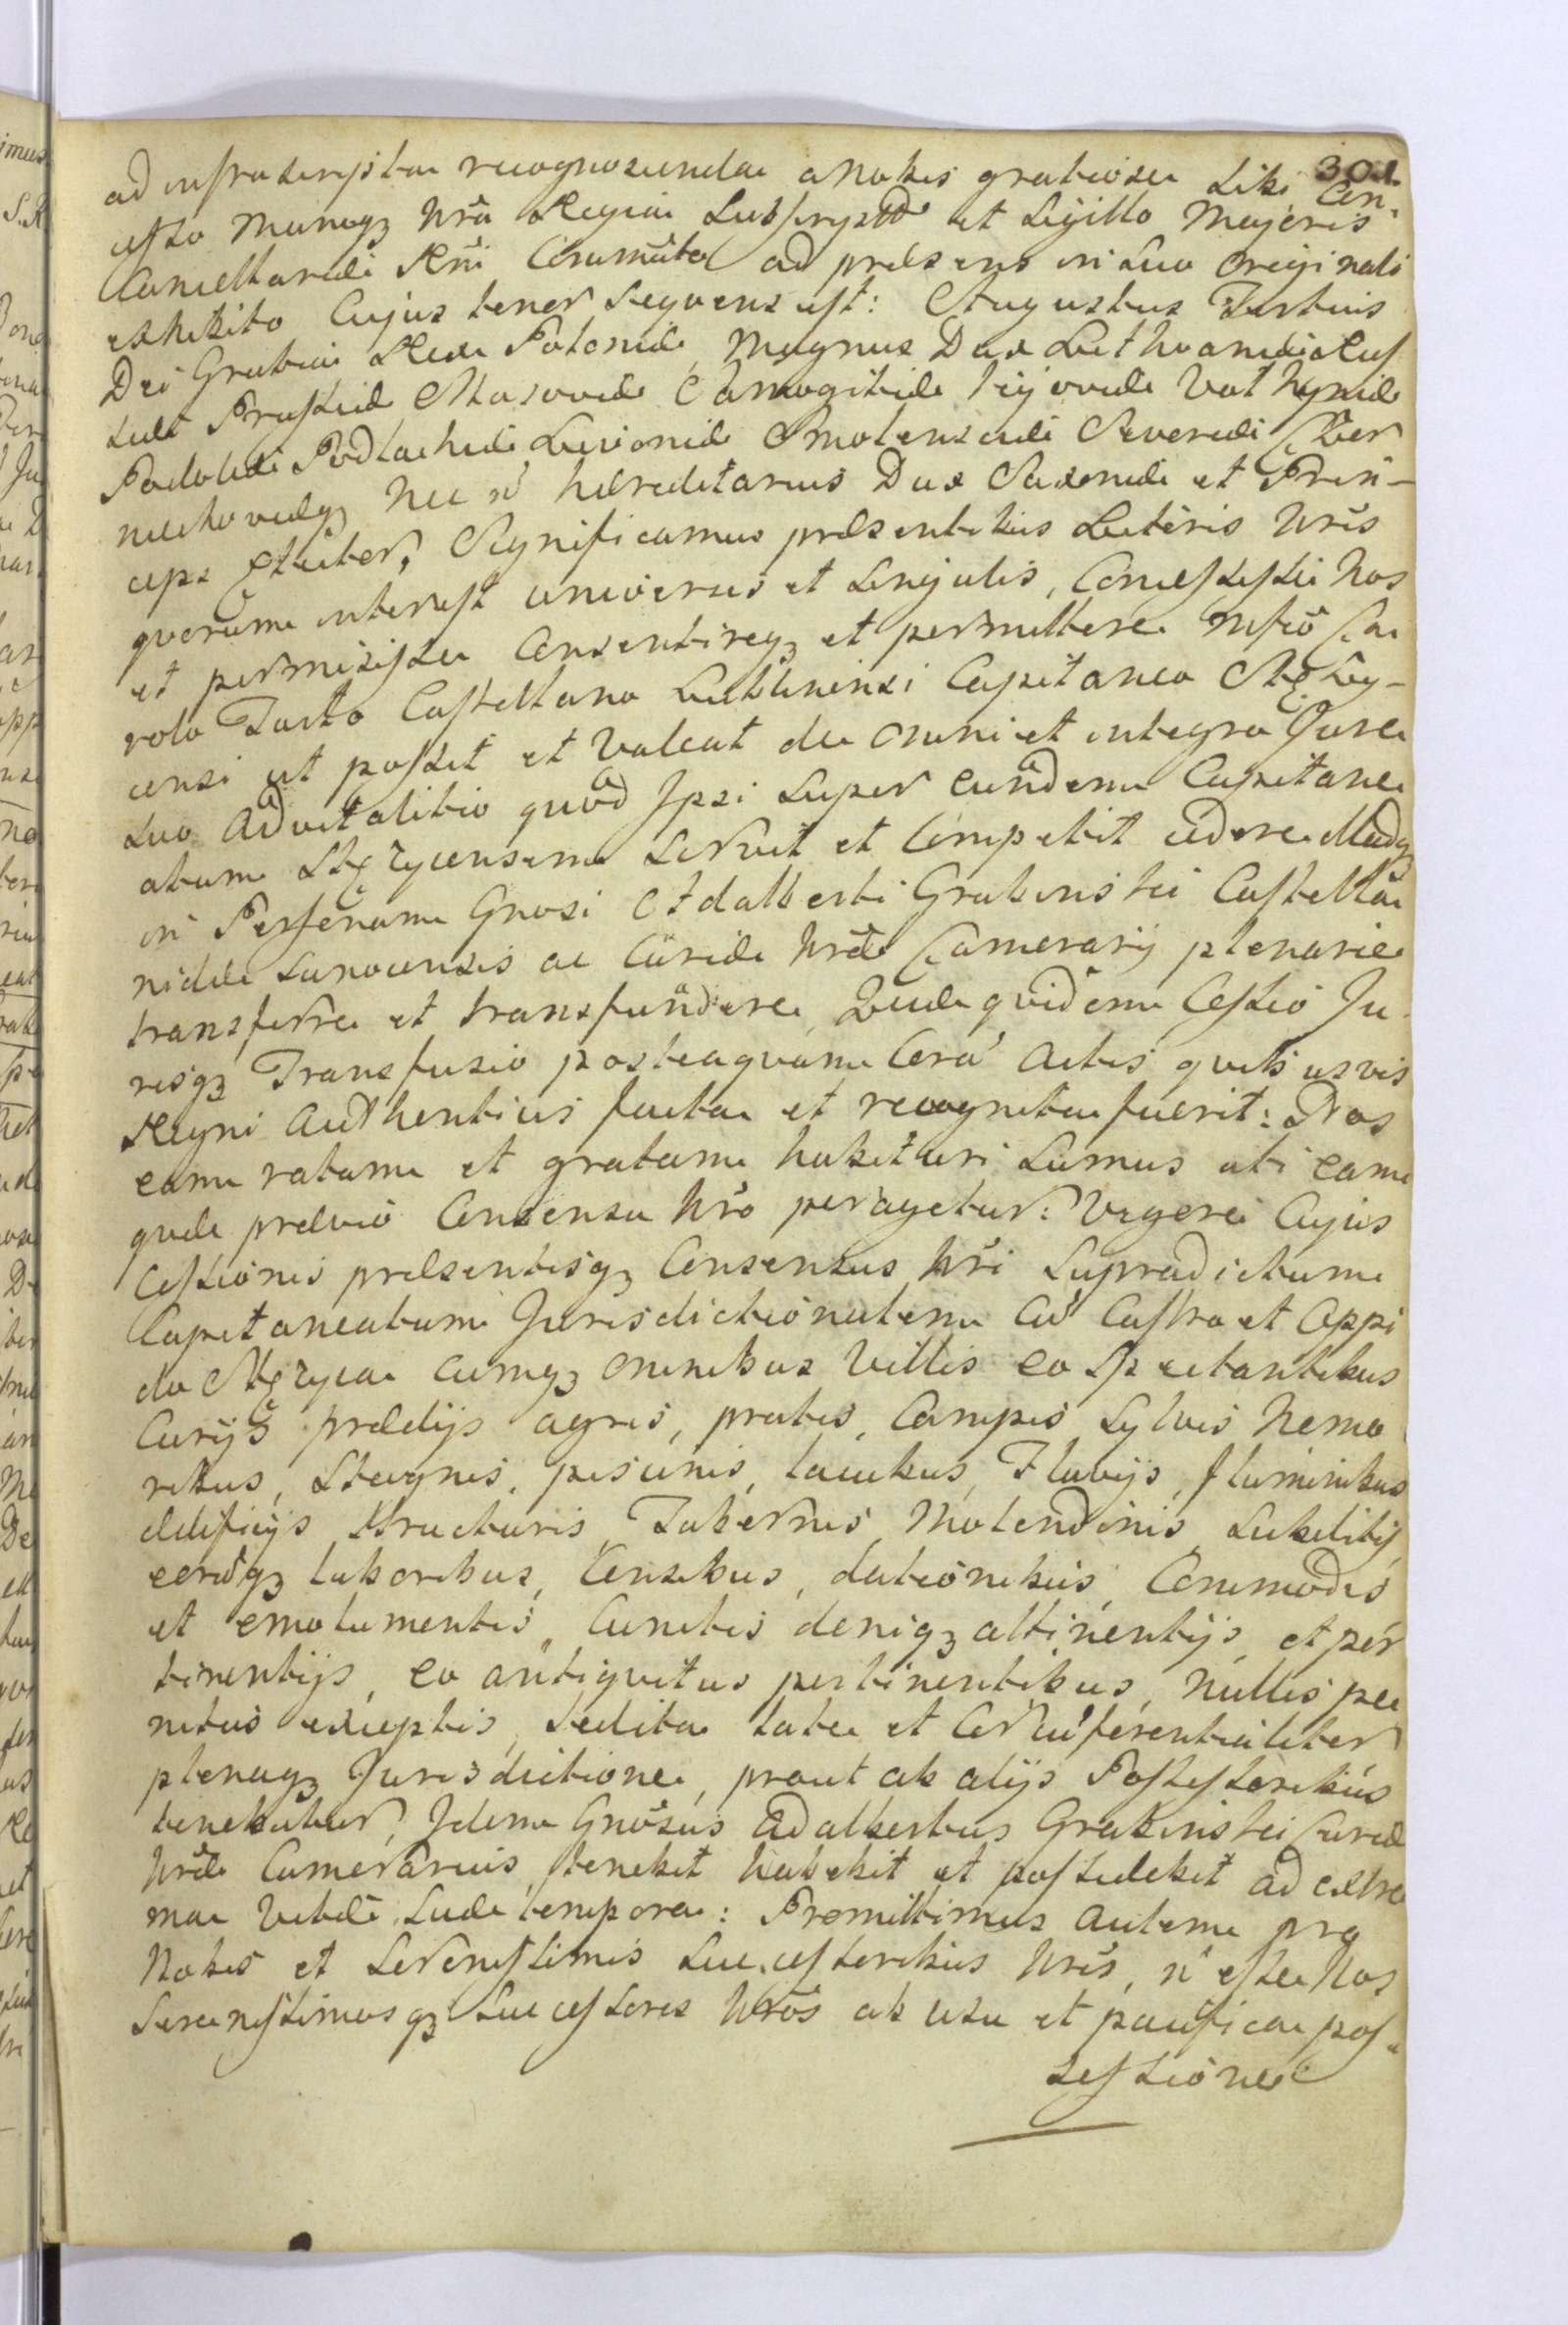 301
ad infrascripta recognoscenda a Nobis gratiose sibi con¬
cesso Manuq3 Nrã Regia Subscripto et Sigillo Majoris
Cancellariæ Rñi Com̃unito ad præsens in suo originali
exhibito Cujus tenor sequens est: Augustus Tertius
Dei Gratia Rex Poloniæ, Magnus Dux Lithvaniæ Rus
siæ Prussiæ Masoviæ Samogitiæ Kijoviæ Volhyniæ
Podoliæ Podlachiæ Livoniæ Smolensciæ Severiæ Czer
niechoviæq3 Nec ñ hæreditarius Dux Saxoniæ et Prin-
ceps Elector, Significamus præsentibus Literis Nris
quorum interest universis et singulis, Concessisse Nos
et permisisse Consentireq3 et permittere Mfco Ca
rolo Tarło Castellano Lublinensi Capitaneo Stęży-
censi ut possit et Valeat de omni et integro Jure
suo Advitalitio quod Ipsi super eundem Capitane
atum Stęzycensem servit et Competit cedere illudq3
in Personam Gnosi Adalberti Grabinski Castella
nidæ Sanocensis ac Curiæ Nræ Camerarij plenarie
transferre et transfundere, Quæ quidem Cessio Ju
risq3 Transfusio posteaquam Corã Actis quibusvis
Regni Authenticis facta et recognita fuerit: Nos
eam ratam et gratam habituri sumus uti eam
quæ prævio Consensu Nro peragetur: Vigore Cujus
Cessionis præsentisq3 Consensus Nri Supradictum
Capitaneatum Jurisdictionalem Cũ Castro et Oppi
do Stęzyca cumq3 omnibus Villis eo Spectantibus
Curijs prædijs agris, pratis, Campis Sylvis Nemo
ribus, Stagnis, piscinis, lacubus, Fluvijs, fluminibus
ædificijs structuris, Tabernis, Molendinis, Subditis,
eorũq3 laboribus, Censibus, dationibus, Commodis
et emolumentis, Cunctis deniq3 attinentijs, et per
tinentijs, eo antiquitus pertinentibus, Nullis pe
nitus exceptis, sed ita late et Circũferentialiter
plenaq3 Jurisdictione, prout ab alijs Possessoribus
tenebatur, Idem Gnosus Adalbertus Grabinski Curiæ
Nræ Camerarius, tenebit habebit et possidebit ad extre
ma Vitæ suæ tempora: Promittimus autem pro
Nobis et Serenissimis Successoribus Nris, ñ esse Nos
Serenissimosq3 Successores Nros ab usu et pacifica pos¬
sessione